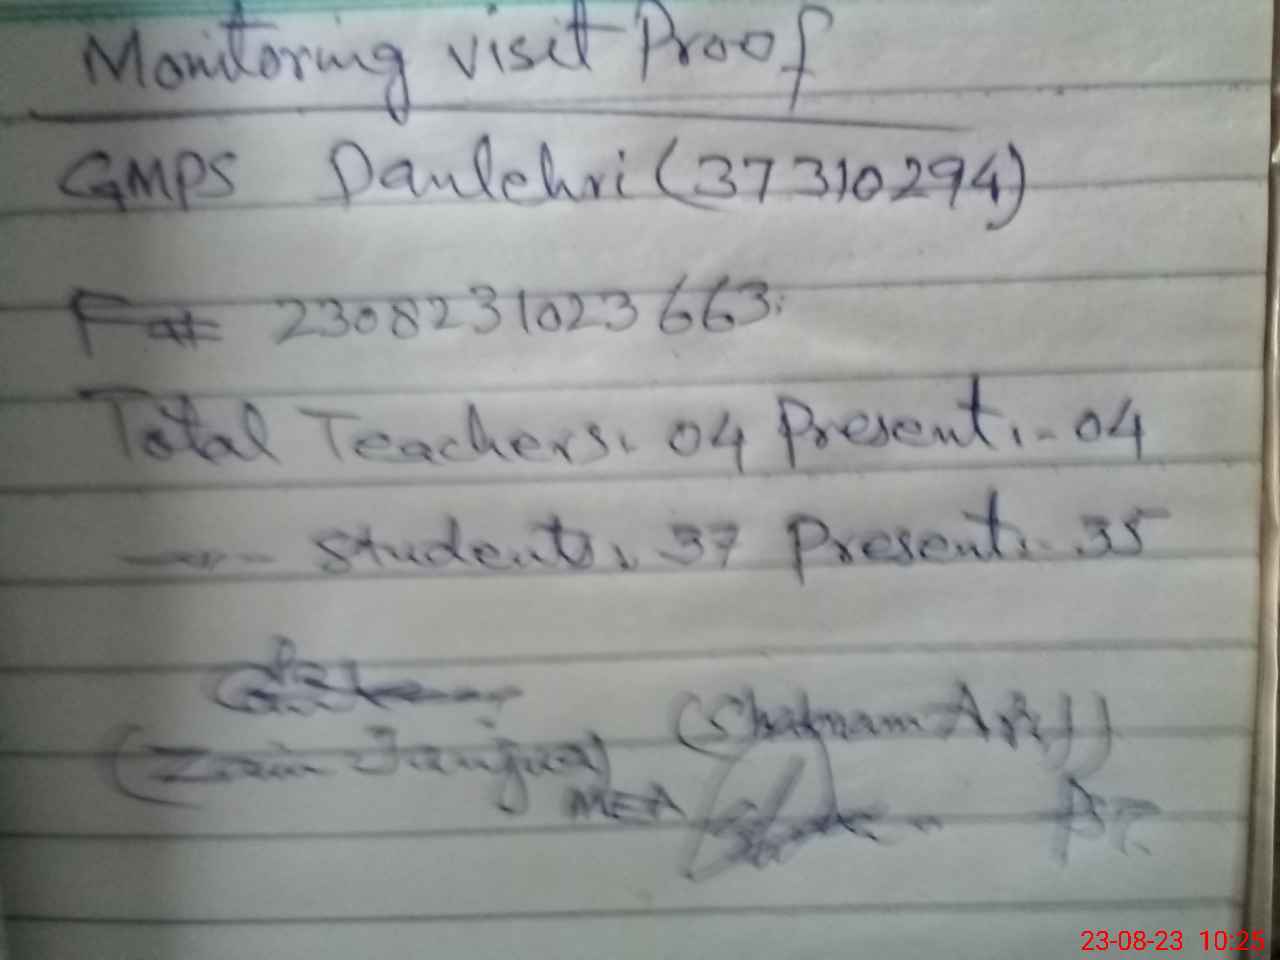 Monitoring visit Proof
GMPS Daulehri (37310294)
F## 2308231023663.
Total Teachers. 04 Present.- 04
—〃— Students. 37 Present.- 35
(Zain Janjua)
MEA
(Shabnam Arif)
PST
23-08-23 10:25